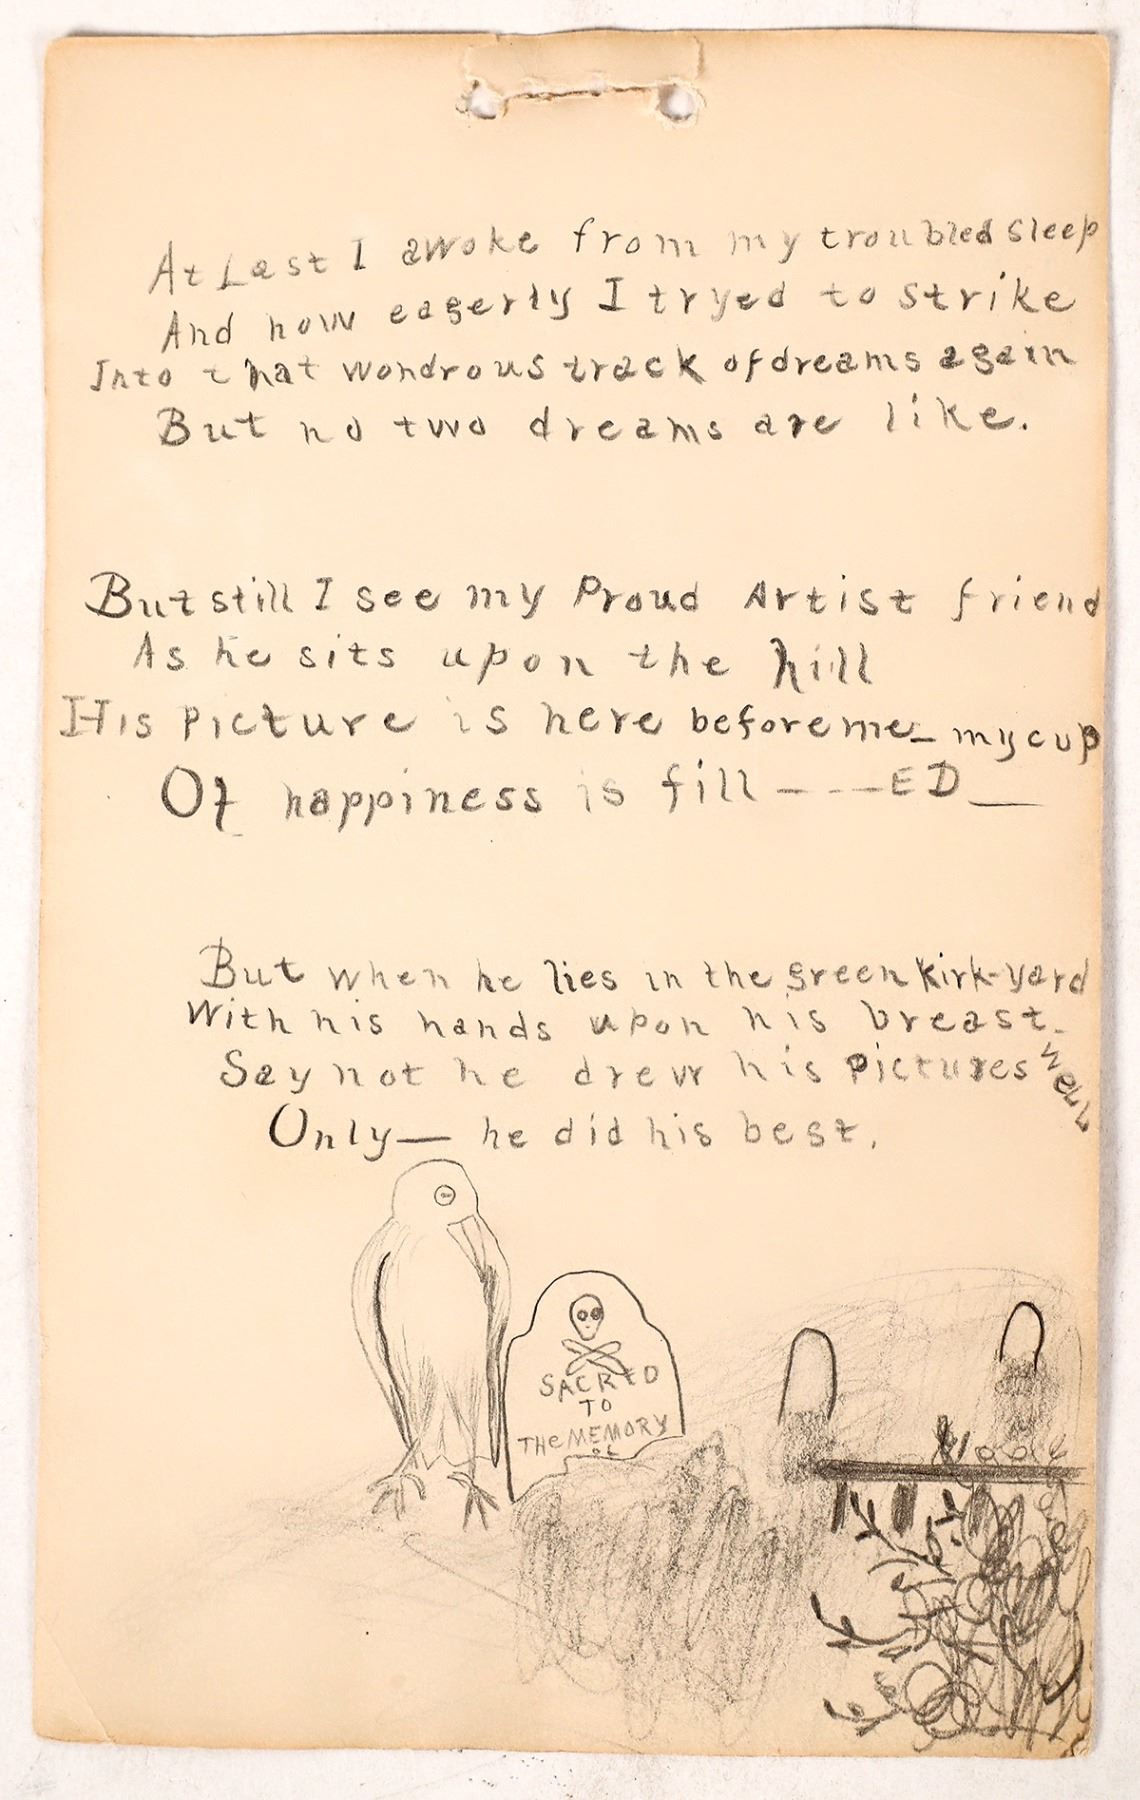 At Last I awoke from my troubled sleep
And how eagerly I tryed to strike
Into that wondrous track of dreams again
But no two dreams are like.
But still I see my Proud Artist friend
As he sits upon the hill
His Picture is here before me_ my cup
Of happiness is fill ----ED__
But when he lies in the green Kirk-yard
With his hands upon his breast.
Say not he drew his pictures well
Only— he did his best.
SACRED
TO
THe MEMORY
OF